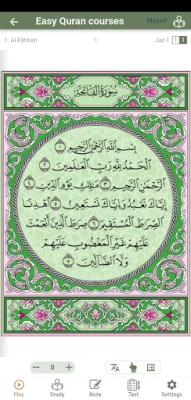 Easy Quran courses
Myself
1. Al-Fātihah
1
Juz-1
1
1
سورة الفاتحة
بسم الله الرحمن الرحيم ١
الحمد لله رب العلمين ٢
الرحمن الرحيم ٣ ملك يوم الدين ٤
إياك نعبد وإياك نستعين ٥ اهدنا
الصراط المستقيم ٦ صراط الذين أنعمت
عليهم غير المغضوب عليهم
ولا الضالين ٧
0
Play
Study
Note
Test
Settings